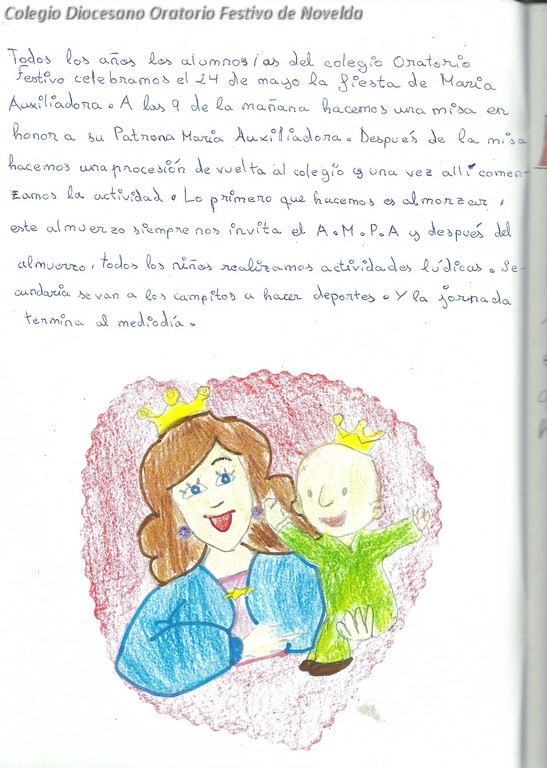 Colegio Diocesano Oratorio Festivo de Novelda
Todos los años los alumnos/as del colegio Oratorio
Festivo celebramos el 24 de mayo la fiesta de María
Auxiliadora. A las 9 de la mañana hacemos una misa en
honor a su Patrona María Auxiliadora. Después de la misa
hacemos una procesión de vuelta al colegio y una vez allí comen-
zamos la actividad. Lo primero que hacemos es almorzar,
este almuerzo siempre nos invita el A.M.P.A y después del
almuerzo, todos los niños realizamos actividades lúdicas. Se-
cundaria se van a los campitos a hacer deportes. Y la jornada
termina al mediodía.